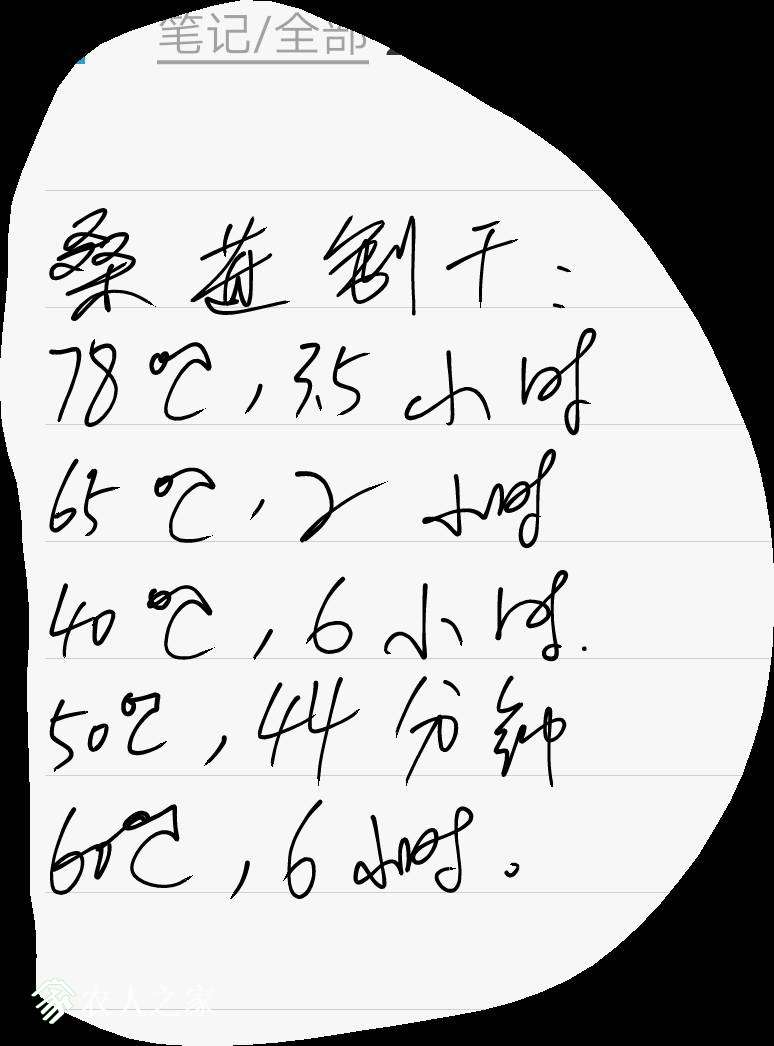 笔记/全部
桑葚制干:
78℃,3.5小时
65℃,2小时
40℃,6小时.
50℃,44分钟
60℃,6小时。
农人之家